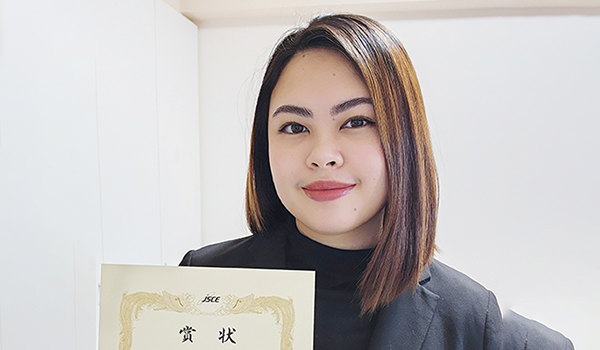 JSCE
賞 状